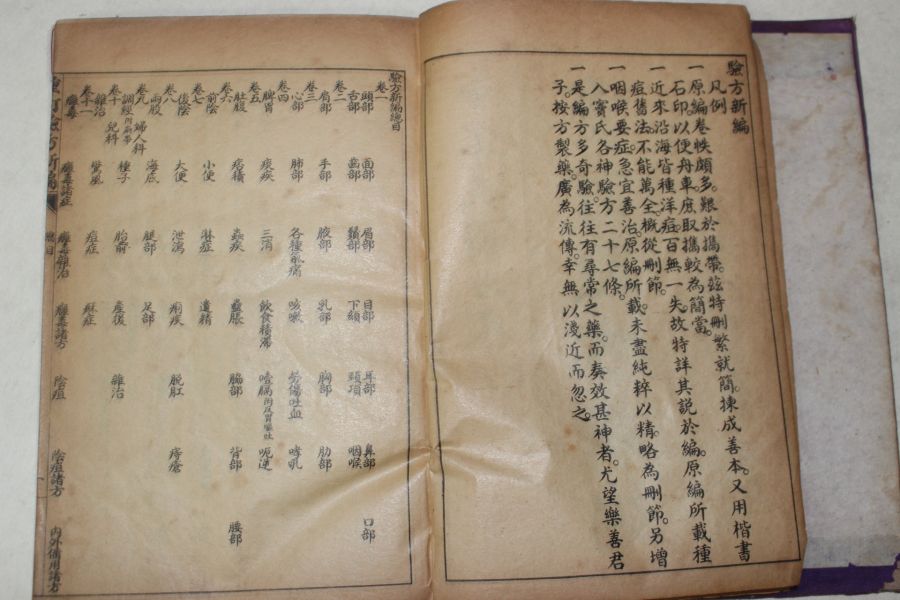 驗方新編
凡例
一原編卷帙頗多。艱於攜帶。茲特刪繁就簡。揀成善本。又用楷書
石印。以便舟車。庶取攜較為簡當。
一近來沿海皆種洋痘。百無一失。故特詳其說於編。原編所載種
痘舊法。不能萬全。概從刪節。
一咽喉要症。急宜善治。原編所載。未盡純粹以精。略為刪節。另增
入竇氏各神驗方二十七條。
一是編方多奇驗。往往有尋常之藥。而奏效甚神者。尤望樂善君
子。按方製藥。廣為流傳。幸無以淺近而忽之。
驗方新編總目
卷一
頭部 面部 眉部 目部 耳部 鼻部 口部
舌部 齒部 鬚部 下頦 頸項 咽喉
卷二
肩部 手部 腋部 乳部 胸部 肋部
卷三
心部 肺部 各種氣痛 咳嗽 勞傷吐血 哮吼
卷四
脾胃 痰疾 三消 飲食積滯 噎膈附反胃嘔吐 呃逆
卷五
肚腹 痞積 蟲疾 蠱脹 脇部 背部 腰部
卷六
前陰 小便 淋症 遺精
卷七
後陰 大便 泄瀉 痢疾 脫肛 痔瘡
卷八
兩股 海底 腿部 足部
卷九 婦人科
調經 種子 胎前 產後 雜治
卷十 兒科
雜治 驚風 痘症 痳症
卷十一
癰毒 癰毒諸症 癰毒雜治 癰毒諸方 陰疽 陰疽諸方 內外備用諸方
總目